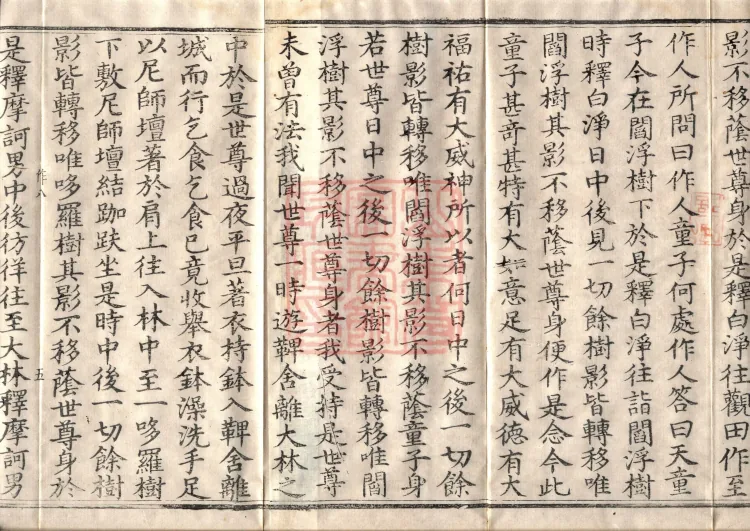 影不移蔭世尊身於是釋白淨往觀田作至
作人所問曰作人童子何處作人答曰天童
子今在閻浮樹下於是釋白淨往詣閻浮樹
時釋白淨日中後見一切餘樹影皆轉移唯
閻浮樹其影不移蔭世尊身便作是念今此
童子甚奇甚特有大如意足有大威德有大
福祐有大威神所以者何日中之後一切餘
樹影皆轉移唯閻浮樹其影不移蔭童子身
若世尊日中之後一切餘樹影皆轉移唯閻
浮樹其影不移蔭世尊身者我受持是世尊
未曾有法我聞世尊一時遊鞞舍離大林之
中於是世尊過夜平旦著衣持鉢入鞞舍離
城而行乞食乞食已竟收舉衣鉢澡洗手足
以尼師壇著於肩上往入林中至一哆羅樹
下敷尼師壇結跏趺坐是時中後一切餘樹
影皆轉移唯哆羅樹其影不移蔭世尊身於
作八 五
是釋摩訶男中後彷徉往至大林釋摩訶男